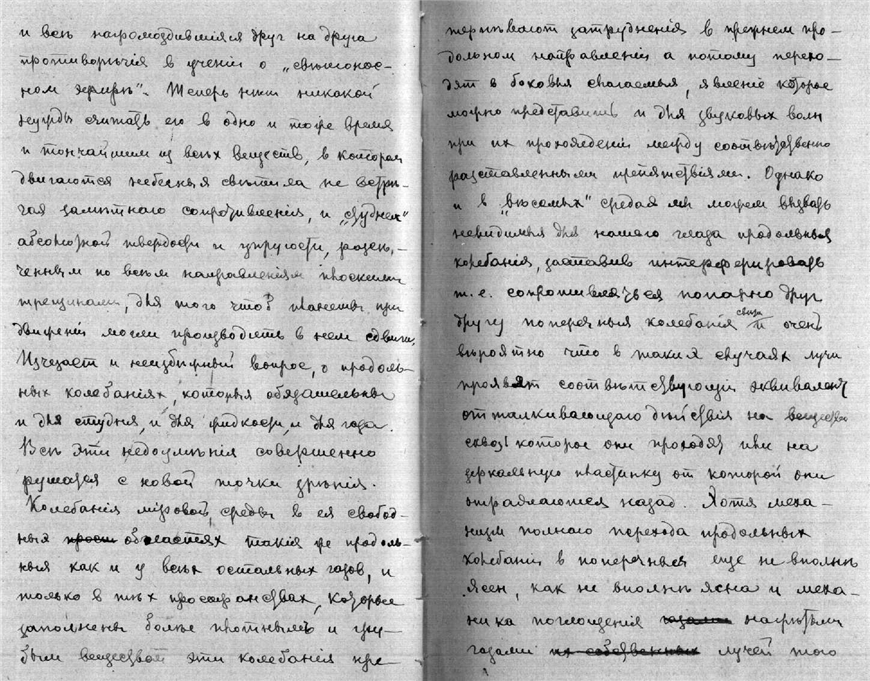 и всѣ нагромоздившіяся друг на друга
противорѣчія в ученіи о „свѣтонос-
ном эѳирѣ“. Теперь нѣт никакой
нужды считать его в одно и тоже время
и тончайшим из всѣх веществ, в котором
двигаются небесныя свѣтила не встрѣ-
чая замѣтнаго сопротивленія, и „студнем“
абсолютной твердости и упругости, разсѣ-
ченным по всѣм направленіям плоскими
трещинами, для того чтоб планеты при
движеніи могли производить в нем сдвиги.
Изчезает и неизбѣжный вопрос, о продоль-
ных колебаніях, которыя обязательны
и для студня и для жидкости, и для газа.
Всѣ эти недоумѣнія совершенно
рушатся с новой точки зрѣнія.
Колебанія міровой среды в ея свобод-
ных прост областях такія же продоль-
ныя как и у всѣх остальных газов, и
только в тѣх пространствах, которые
заполнены болѣе плотным и гру-
бым веществом эти колебанія пре-
терпѣвают затрудненія в прежнем про-
дольном направленіи а потому перехо-
дят в боковыя, явленіе которое
можно представить и для звуковых волн
при их прохожденіи между соотвѣтственно
разставленными препятствіями. Однако
и в „вѣсомых“ средах мы можем вызвать
невидимыя для нашего глаза продольныя
колебанія, заставив интерферировать
т. е. сопротивляться попарно друг
другу поперечныя колебанія и очень
вѣроятно что в таких случаях лучи
проявят соотвѣтствующій эквивалент
отталкивающаго дѣйствія на вещество
сквозь которое они проходят или на
зеркальную пластинку от которой они
отражаются назад. Хотя меха-
низм полнаго перехода продольных
колебаній в поперечныя еще не вполнѣ
ясен, как не вполнѣ ясна и меха-
ника поглощенія газами нагрѣтыми
газами их собственных лучей того